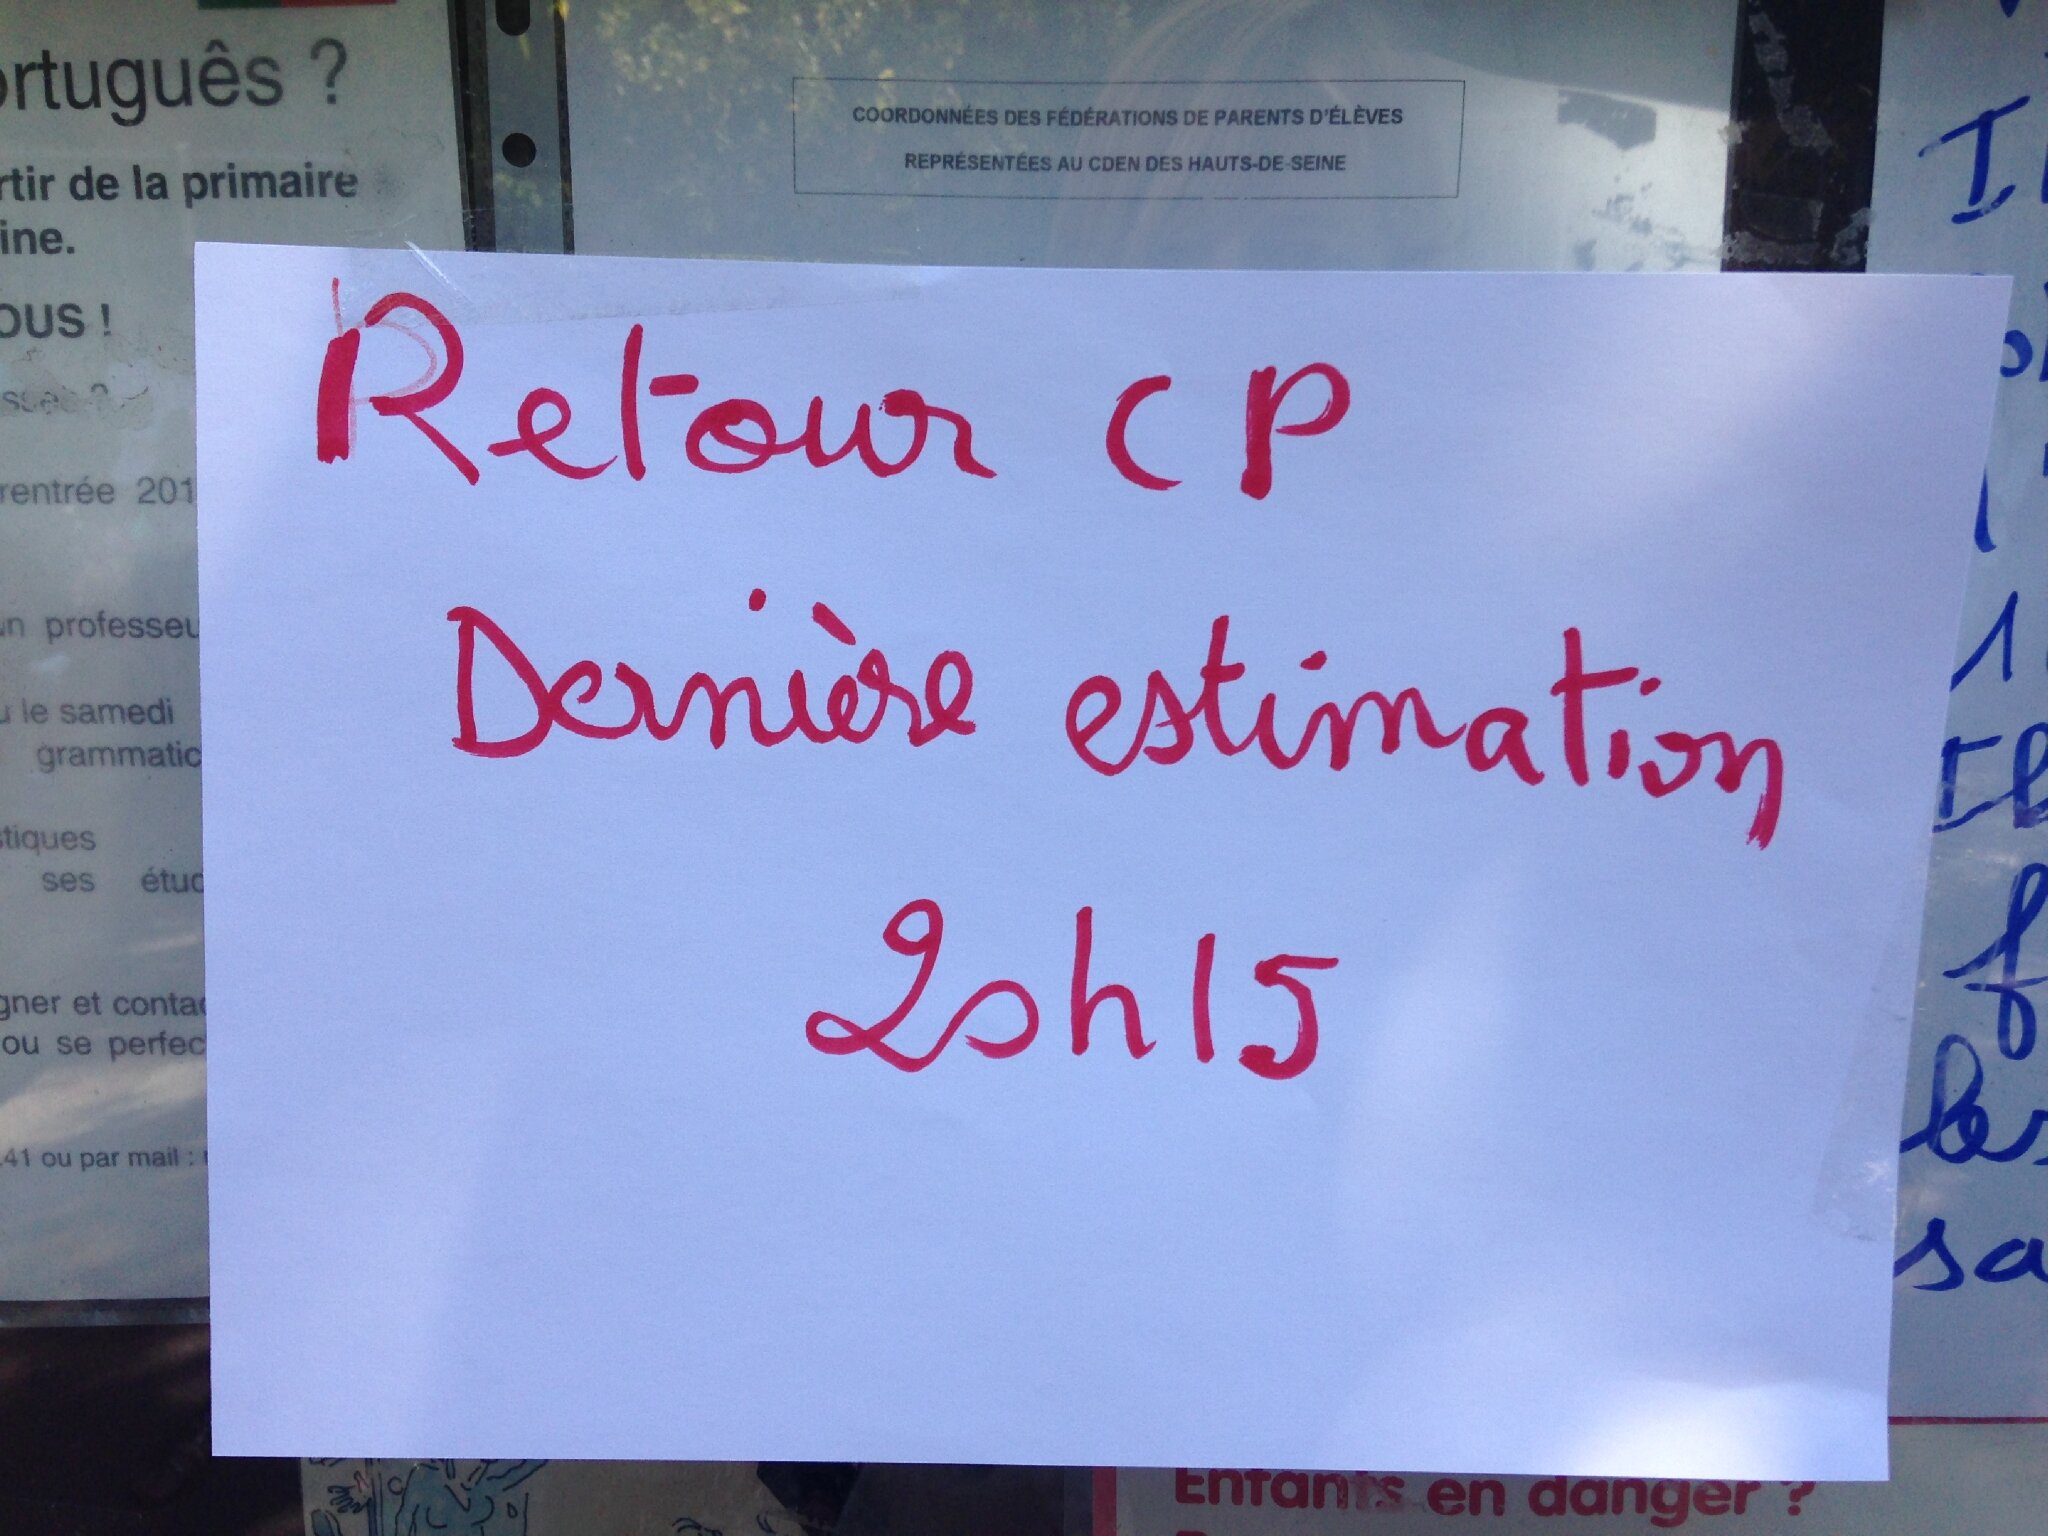 ortuguês ?
rtir de la primaire
ine.
OUS !
rentrée 201
un professeu
u le samedi
grammatic
stiques
ses étud
gner et contac
ou se perfec
.41 ou par mail :
COORDONNÉES DES FÉDÉRATIONS DE PARENTS D'ÉLÈVES
REPRÉSENTÉES AU CDEN DES HAUTS-DE-SEINE
Retour CP
Dernière estimation
20h15
sa
Enfants en danger ?